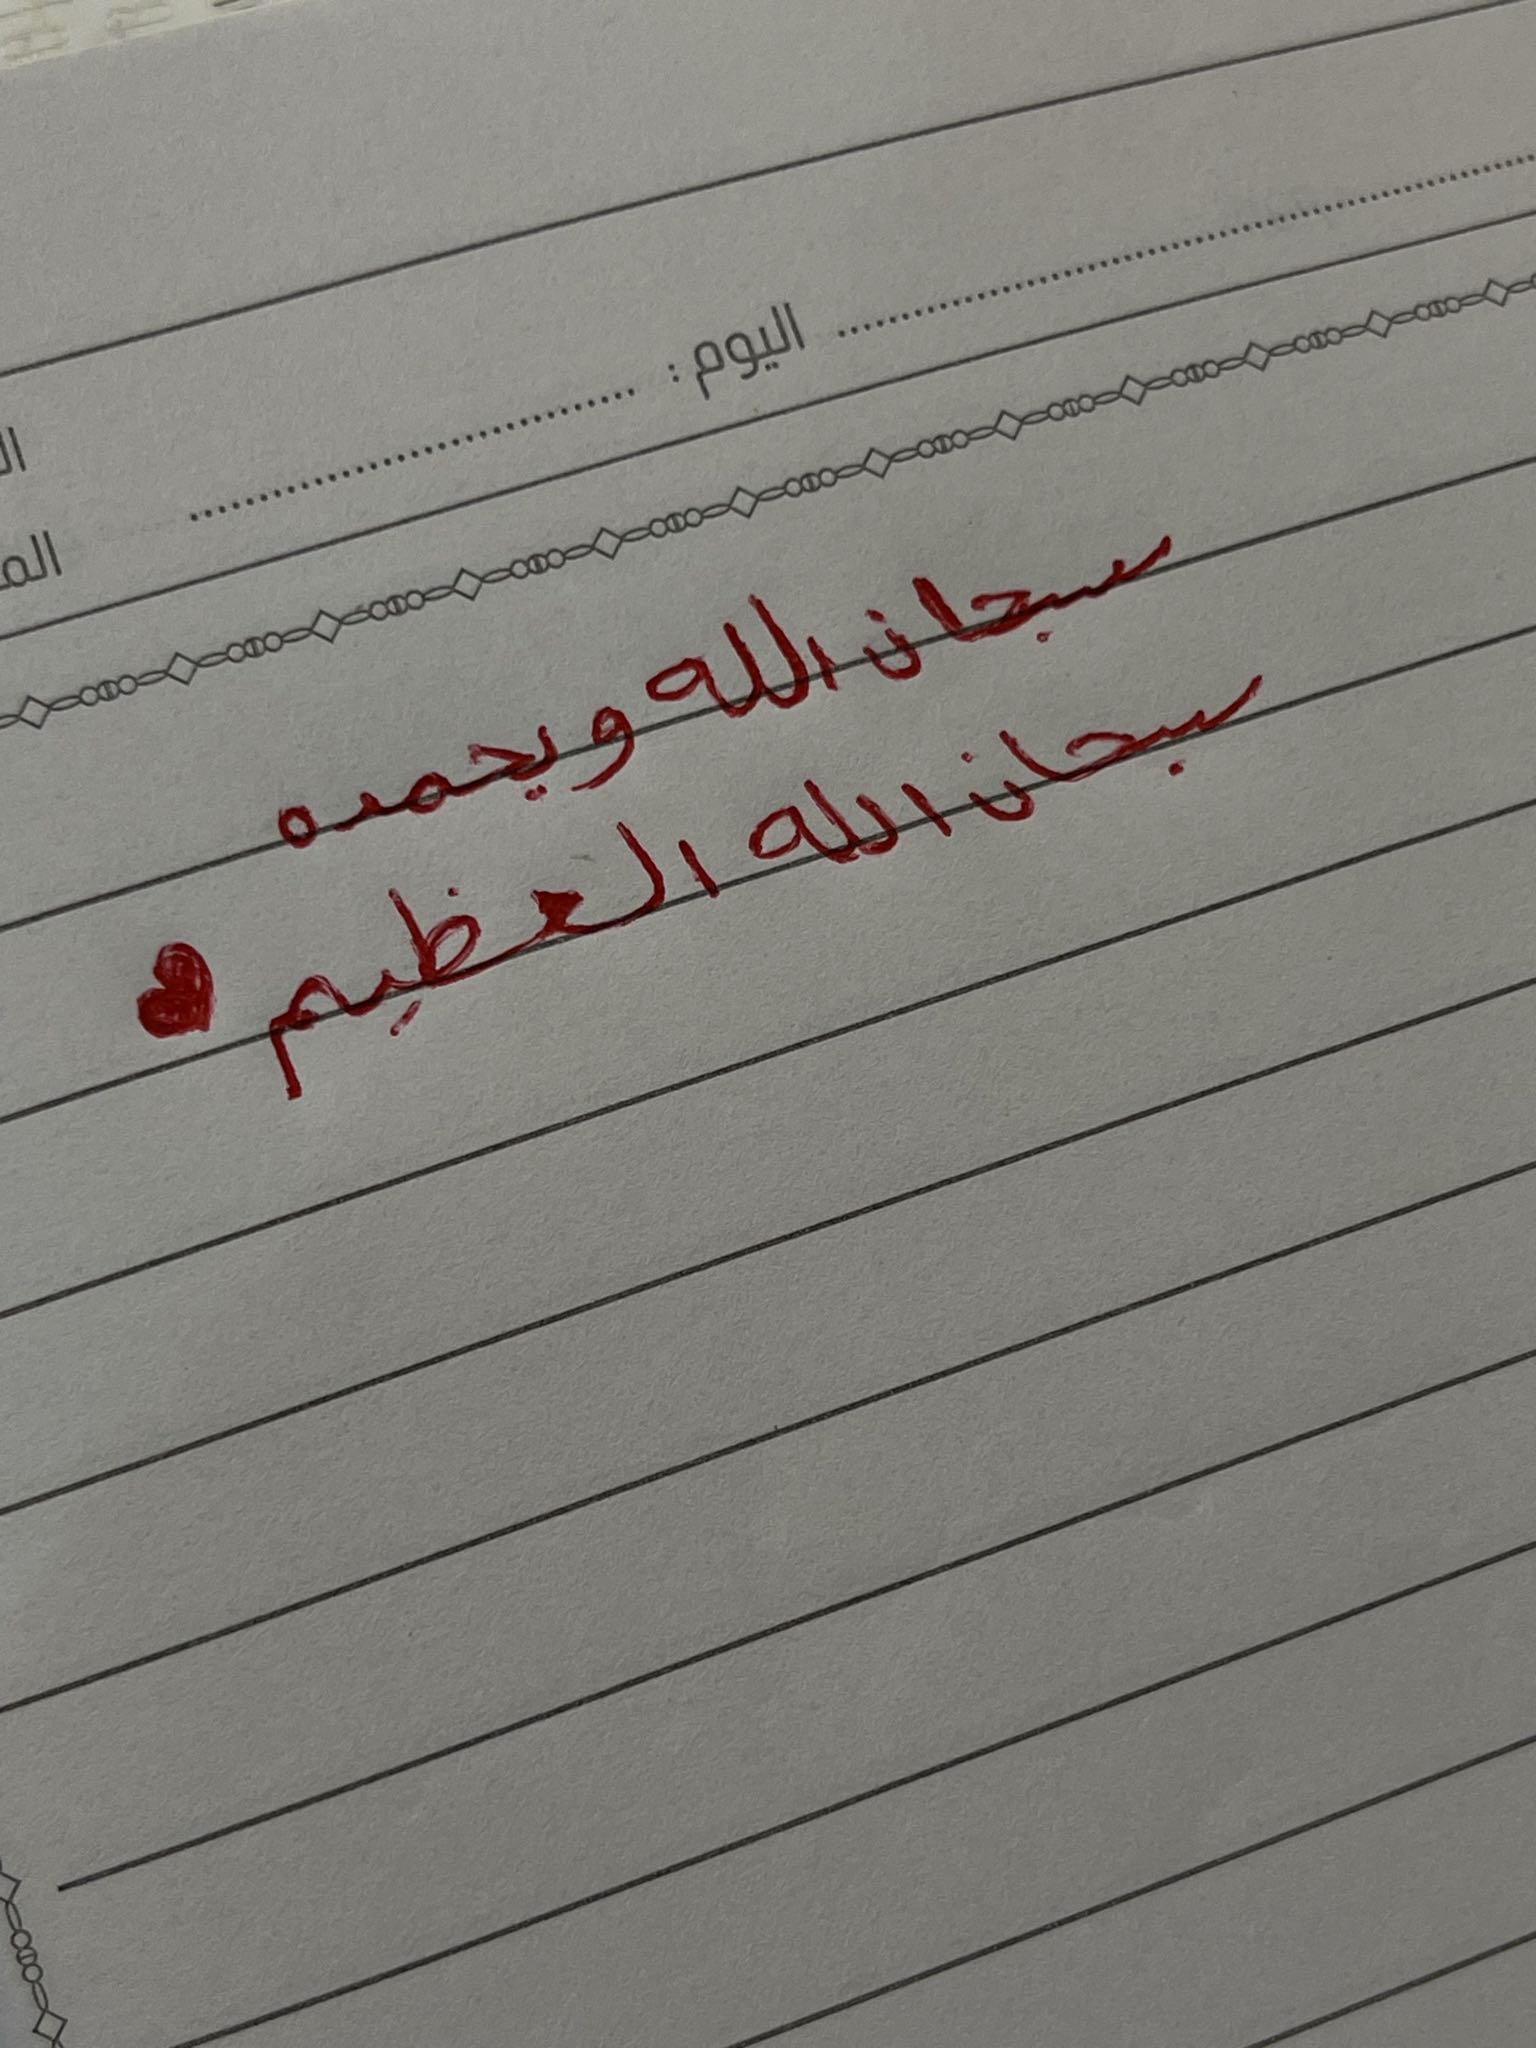 ال
اليوم :
الم
سبحان الله وبحمده
سبحان الله العظيم ♥